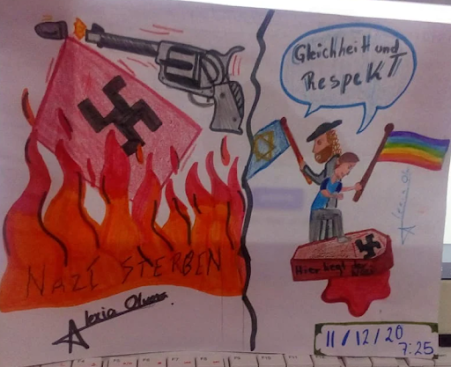 Gleichheit und
RespeKT
NAZI STERBEN
Alexia
Hier liegt
11/12/20
7:25